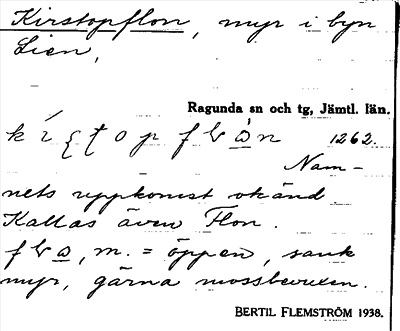 Kirstopflon, myr i byn
Lien,
Ragunda sn och tg, Jämtl. län.
1262.
Nam-
nets uppkomst okänd.
Kallas även Flon.
m. = öppen, sank
myr, gärna mossbevuxen.
BERTIL FLEMSTRÖM 1938.